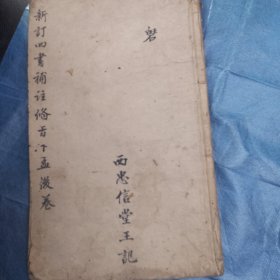 新訂四書補註備旨下孟後卷
西忠信堂王記